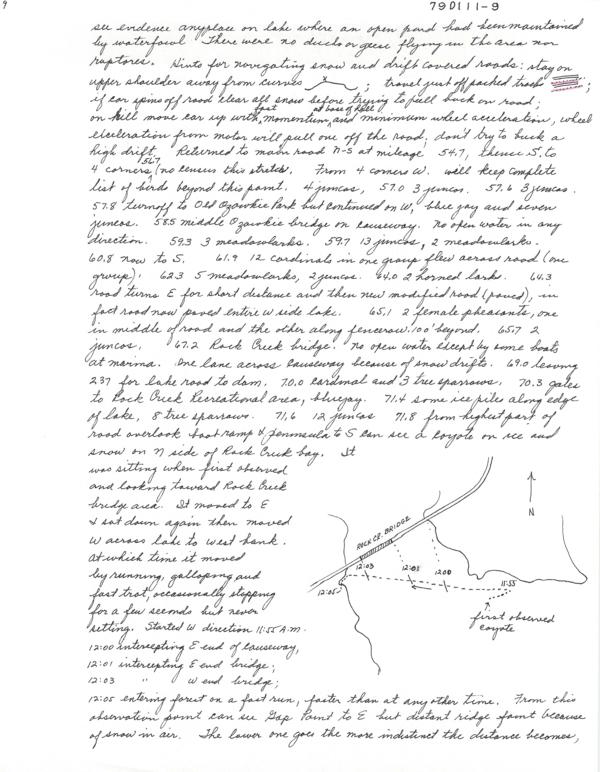 9
79D111-9
see evidence anyplace on lake where an open pond had been maintained
by waterfowl. There were no ducks or geese flying in the area nor
raptores. Hints for navigating snow and drift covered roads: stay on
upper shoulder away from curves ; travel just off packed track ;
if car spins off road clear all snow before trying to pull back on road;
on hill move car up with fast momentum, at base of hill and minimum wheel acceleration, wheel
elceleration from motor will pull one off the road; don't try to buck a
high drift. Returned to main road N-S at mileage 54.7, thence S. to
4 corners, 56.7 (no census this stretch. From 4 corners W. will keep complete
list of birds beyond this point. 4 juncos, 57.0 3 juncos. 57.6 3 juncos.
57.8 turnoff to Old Ozawkie Park but continued on W, blue jay and seven
juncos. 58.5 middle Ozawkie bridge on causeway. No open water in any
direction. 59.3 3 meadowlarks. 59.7 13 juncos, 2 meadowlarks.
60.8 now to S. 61.9 12 cardinals in one group flew across road (one
group). 62.3 5 meadowlarks, 2 juncos. 64.0 2 horned larks. 64.3
road turns E for short distance and then new modified road (paved), in
fact road now paved entire W side lake. 65.1 2 female pheasants, one
in middle of road and the other along fencerow 100' beyond. 65.7 2
juncos. 67.2 Rock Creek bridge. No open water except by some boats
at marina. One lane across causeway because of snow drifts. 69.0 leaving
237 for lake road to dam. 70.0 cardinal and 3 tree sparrows. 70.3 gates
to Rock Creek Recreational area, bluejay. 71.4 some ice piles along edge
of lake, 8 tree sparrows. 71.6 12 juncos 71.8 from highest part of
road overlook boat ramp & peninsula to S can see a coyote on ice and
snow on N side of Rock Creek bay. It
was sitting when first observed
and looking toward Rock Creek
bridge area. It moved to E
& sat down again then moved
W across lake to west bank.
At which time it moved
by running, galloping and
fast trot, occasionally stopping
for a few seconds but never
setting. Started W direction 11:55 A.M.
12:00 intercepting E end of causeway,
12:01 intercepting E end bridge;
12:03 " W end bridge;
12:05 entering forest on a fast run, faster than at any other time. From this
observation point can see Gap Point to E but distant ridge faint because
of snow in air. The lower one goes the more indistinct the distance becomes,
N
ROCK CR. BRIDGE
12:03
12:01
12:00
11:55
12:05
first observed
coyote